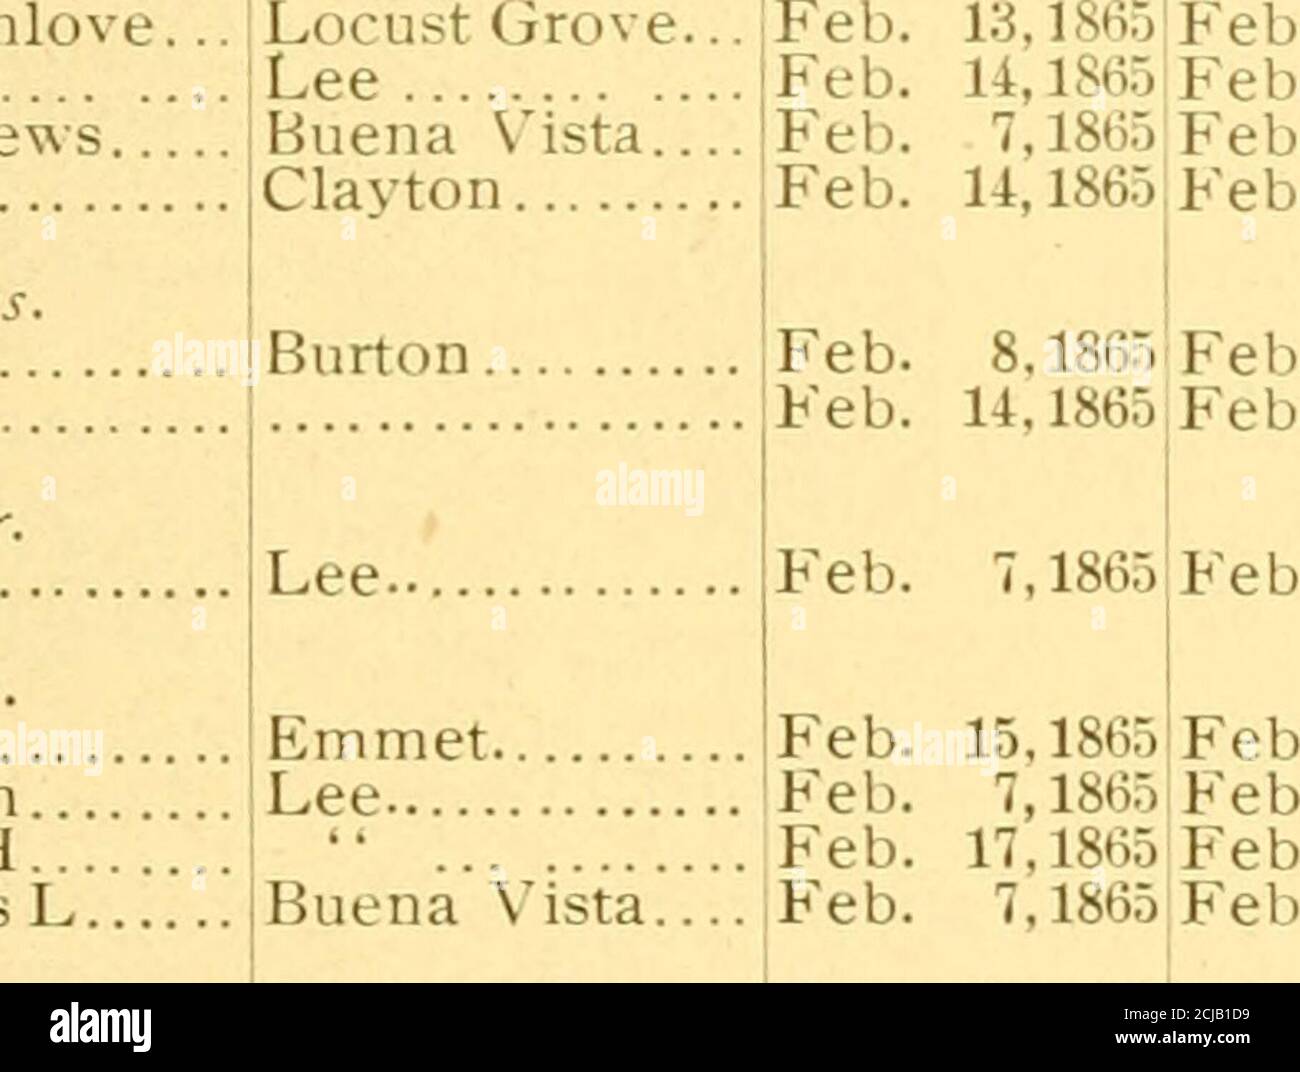 nlove... Locust Grove... Feb. 13, 1865 Feb
.... .... Lee ........ .... Feb. 14, 1865 Feb
ews..... Buena Vista.... Feb. 7, 1865 Feb
.......... Clayton......... Feb. 14, 1865 Feb
s.
.......... Burton .......... Feb. 8, 1865 Feb
.......... .................. Feb. 14, 1865 Feb
r.
.......... Lee.............. Feb. 7, 1865 Feb
.
.......... Emmet........... Feb. 15, 1865 Feb
n........ Lee.............. Feb. 7, 1865 Feb
H........ “ ... ......... Feb. 17, 1865 Feb
s L...... Buena Vista.... Feb. 7, 1865 Feb
alamy
Image ID: 2CJB1D9
www.alamy.com